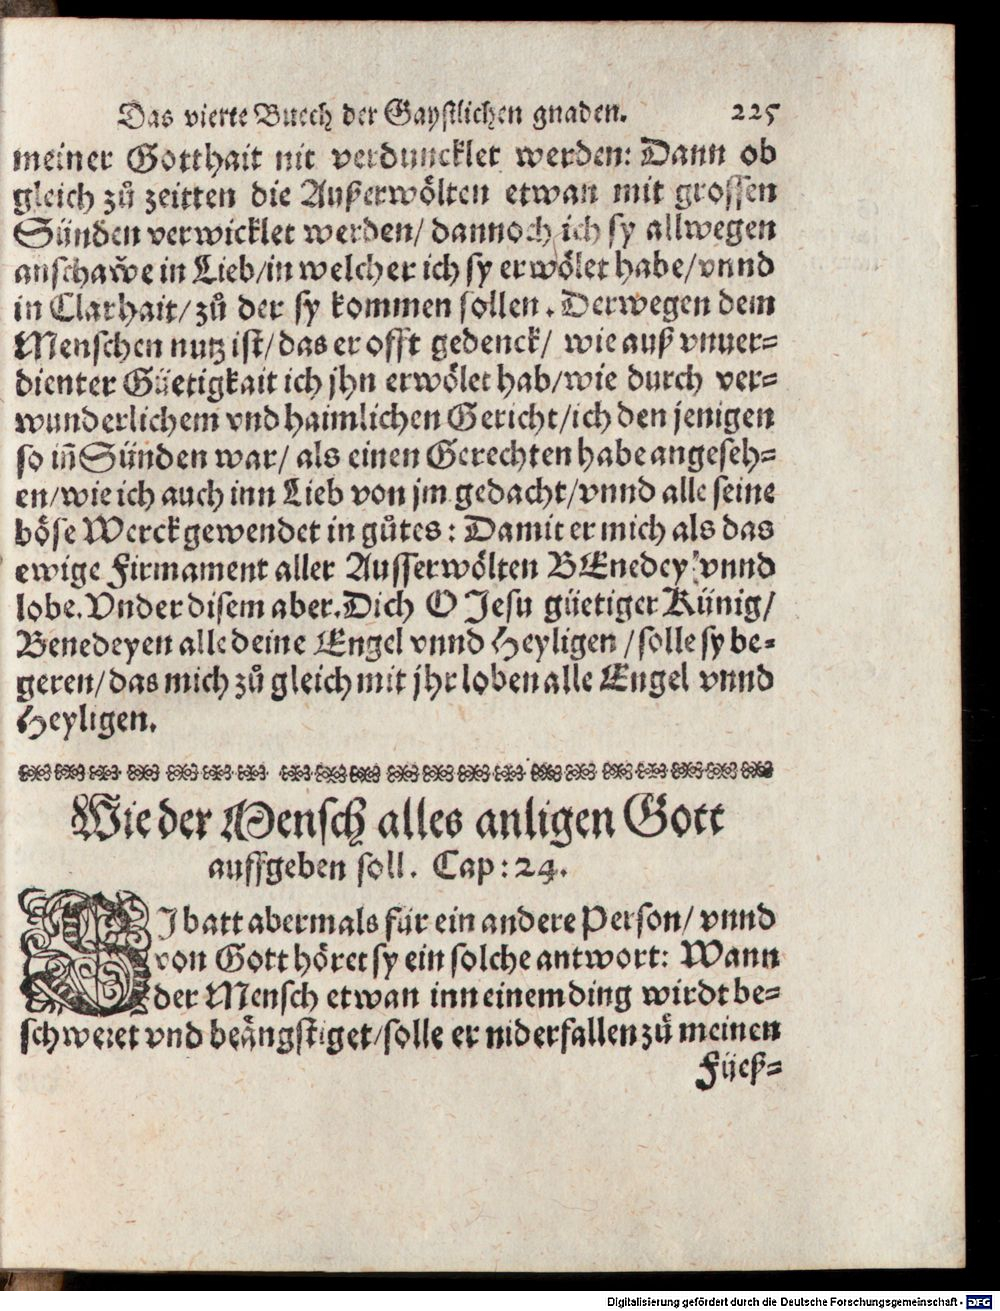 Das vierte Buech der Gaystlichen gnaden. 225
meiner Gotthait nit verduncklet werden: Dann ob
gleich zů zeitten die Außerwölten etwan mit grossen
Sünden verwicklet werden/ dannoch ich sy allwegen
anschawe in Lieb/in welcher ich sy erwölet habe/vnnd
in Clarhait/ zů der sy kommen sollen. Derwegen dem
Menschen nutz ist/das er offt gedenck/ wie auß vnuer-
dienter Güetigkait ich jhn erwölet hab/wie durch ver-
wunderlichem vnd haimlichen Gericht/ich den jenigen
so iñ Sünden war/ als einen Gerechten habe angeseh-
en/wie ich auch inn Lieb von jm gedacht/vnnd alle seine
böse Werck gewendet in gůtes: Damit er mich als das
ewige Firmament aller Ausserwölten BEnedey vnnd
lobe. Vnder disem aber. Dich O Jesu güetiger Künig/
Benedeyen alle deine Engel vnnd Heyligen /solle sy be-
geren/das mich zů gleich mit jhr loben alle Engel vnnd
Heyligen.
Wie der Mensch alles anligen Gott
auffgeben soll. Cap: 24.
SJ batt abermals für ein andere Person/ vnnd
von Gott höret sy ein solche antwort: Wann
der Mensch etwan inn einem ding wirdt be-
schweret vnd beängstiget/solle er niderfallen zů meinen
Füeß-
Digitalisierung gefördert durch die Deutsche Forschungsgemeinschaft - DFG